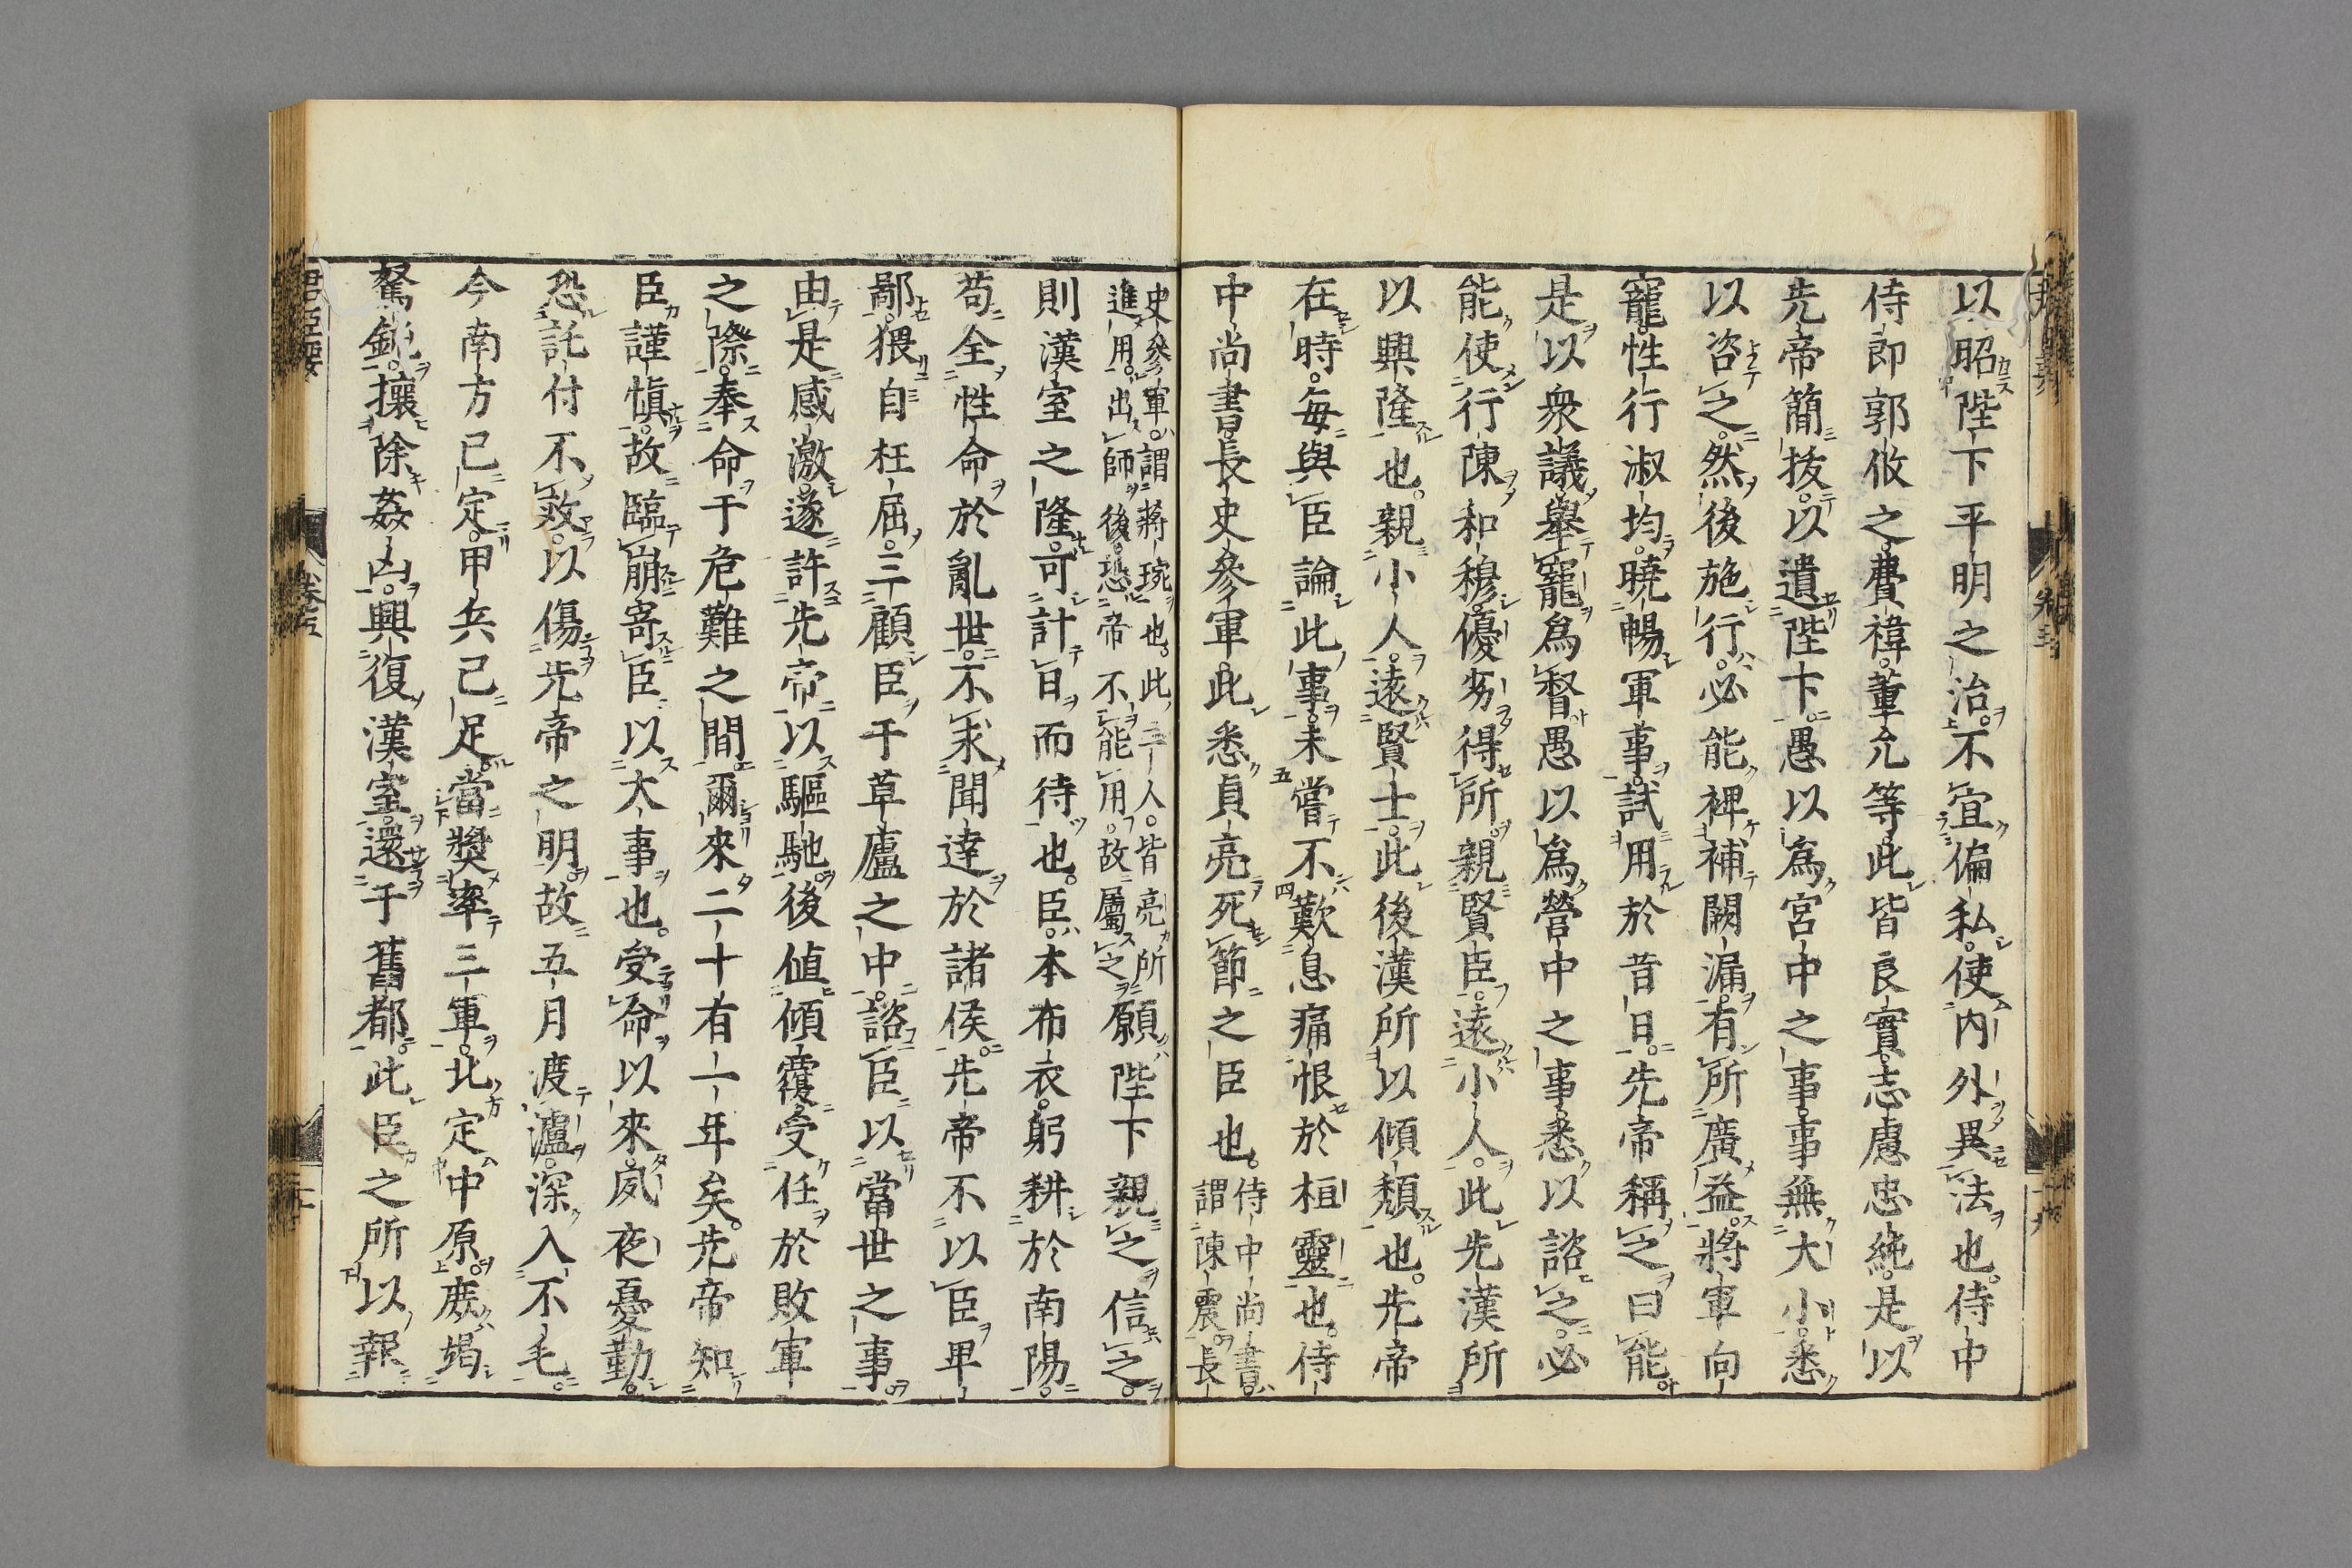 以昭陛下平明之治不宜偏私使內外異法也侍中
侍郎郭攸之費禕董允等此皆良實志慮忠純是以
先帝簡拔以遺陛下愚以爲宮中之事事無大小悉
以咨之然後施行必能裨補闕漏有所廣益將軍向
寵性行淑均曉暢軍事試用於昔日先帝稱之曰能
是以衆議舉寵爲督愚以爲營中之事悉以諮之必
能使行陳和穆優劣得所親賢臣遠小人此先漢所
以興隆也親小人遠賢士此後漢所以傾頽也先帝
在時每與臣論此事未嘗不歎息痛恨於桓靈也侍
中尚書長史參軍此悉貞亮死節之臣也侍中尚書
謂陳震長
史參軍謂蔣琬也此三人皆亮所
進用出師後恐帝不能用故屬之願陛下親之信之
則漢室之隆可計日而待也臣本布衣躬耕於南陽
苟全性命於亂世不求聞達於諸侯先帝不以臣卑
鄙猥自枉屈三顧臣于草廬之中諮臣以當世之事
由是感激遂許先帝以驅馳後値傾覆受任於敗軍
之際奉命于危難之間爾來二十有一年矣先帝知
臣謹愼故臨崩寄臣以大事也受命以來夙夜憂勤
恐託付不效以傷先帝之明故五月渡瀘深入不毛
今南方已定甲兵已足當奬率三軍北定中原庶竭
駑鈍攘除姦凶興復漢室還于舊都此臣之所以報